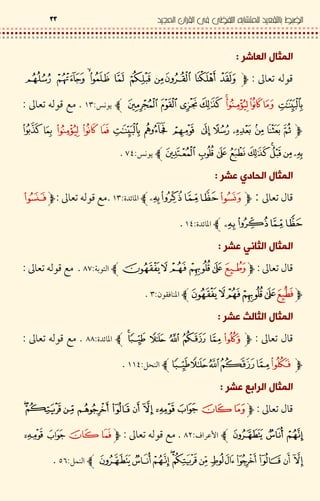 الضبط بالتقعيد للمتشابه اللفظي في القرآن المجيد
٢٣
المثال العاشر :
قوله تعالى : ﴿ وَلَقَدْ أَهْلَكْنَا ٱلْقُرُونَ مِن قَبْلِكُمْ لَمَّا ظَلَمُوا۟ وَجَآءَتْهُمْ رُسُلُهُم
بِٱلْبَيِّنَـٰتِ وَمَا كَانُوا۟ لِيُؤْمِنُوا۟ كَذَٰلِكَ نَجْزِى ٱلْقَوْمَ ٱلْمُجْرِمِينَ ﴾ يونس:١٣ . مع قوله تعالى :
﴿ ثُمَّ بَعَثْنَا مِنۢ بَعْدِهِۦ رُسُلًا إِلَىٰ قَوْمِهِمْ فَجَآءُوهُم بِٱلْبَيِّنَـٰتِ فَمَا كَانُوا۟ لِيُؤْمِنُوا۟ بِمَا كَذَّبُوا۟
بِهِۦ مِن قَبْلُ كَذَٰلِكَ نَطْبَعُ عَلَىٰ قُلُوبِ ٱلْمُعْتَدِينَ ﴾ يونس:٧٤ .
المثال الحادي عشر :
قال تعالى : ﴿ وَنَسُوا۟ حَظًّا مِّمَّا ذُكِّرُوا۟ بِهِۦ ﴾ المائدة:١٣ .مع قوله تعالى :﴿ فَنَسُوا۟
حَظًّا مِّمَّا ذُكِّرُوا۟ بِهِۦ ﴾ المائدة:١٤ .
المثال الثاني عشر :
قال تعالى : ﴿ وَطُبِعَ عَلَىٰ قُلُوبِهِمْ فَهُمْ لَا يَفْقَهُونَ ﴾ التوبة:٨٧ . مع قوله تعالى :
﴿ فَطُبِعَ عَلَىٰ قُلُوبِهِمْ فَهُمْ لَا يَفْقَهُونَ ﴾ المنافقون:٣ .
المثال الثالث عشر :
قال تعالى : ﴿ وَكُلُوا۟ مِمَّا رَزَقَكُمُ ٱللَّهُ حَلَـٰلًا طَيِّبًا ﴾ المائدة:٨٨ . مع قوله تعالى :
﴿ فَكُلُوا۟ مِمَّا رَزَقَكُمُ ٱللَّهُ حَلَـٰلًا طَيِّبًا ﴾ النحل:١١٤ .
المثال الرابع عشر :
قال تعالى : ﴿ وَمَا كَانَ جَوَابَ قَوْمِهِۦٓ إِلَّآ أَن قَالُوٓا۟ أَخْرِجُوهُم مِّن قَرْيَتِكُمْ
إِنَّهُمْ أُنَاسٌ يَتَطَهَّرُونَ ﴾ الأعراف:٨٢ . مع قوله تعالى : ﴿ فَمَا كَانَ جَوَابَ قَوْمِهِۦٓ
إِلَّآ أَن قَالُوٓا۟ أَخْرِجُوٓا۟ ءَالَ لُوطٍ مِّن قَرْيَتِكُمْ إِنَّهُمْ أُنَاسٌ يَتَطَهَّرُونَ ﴾ النمل:٥٦ .